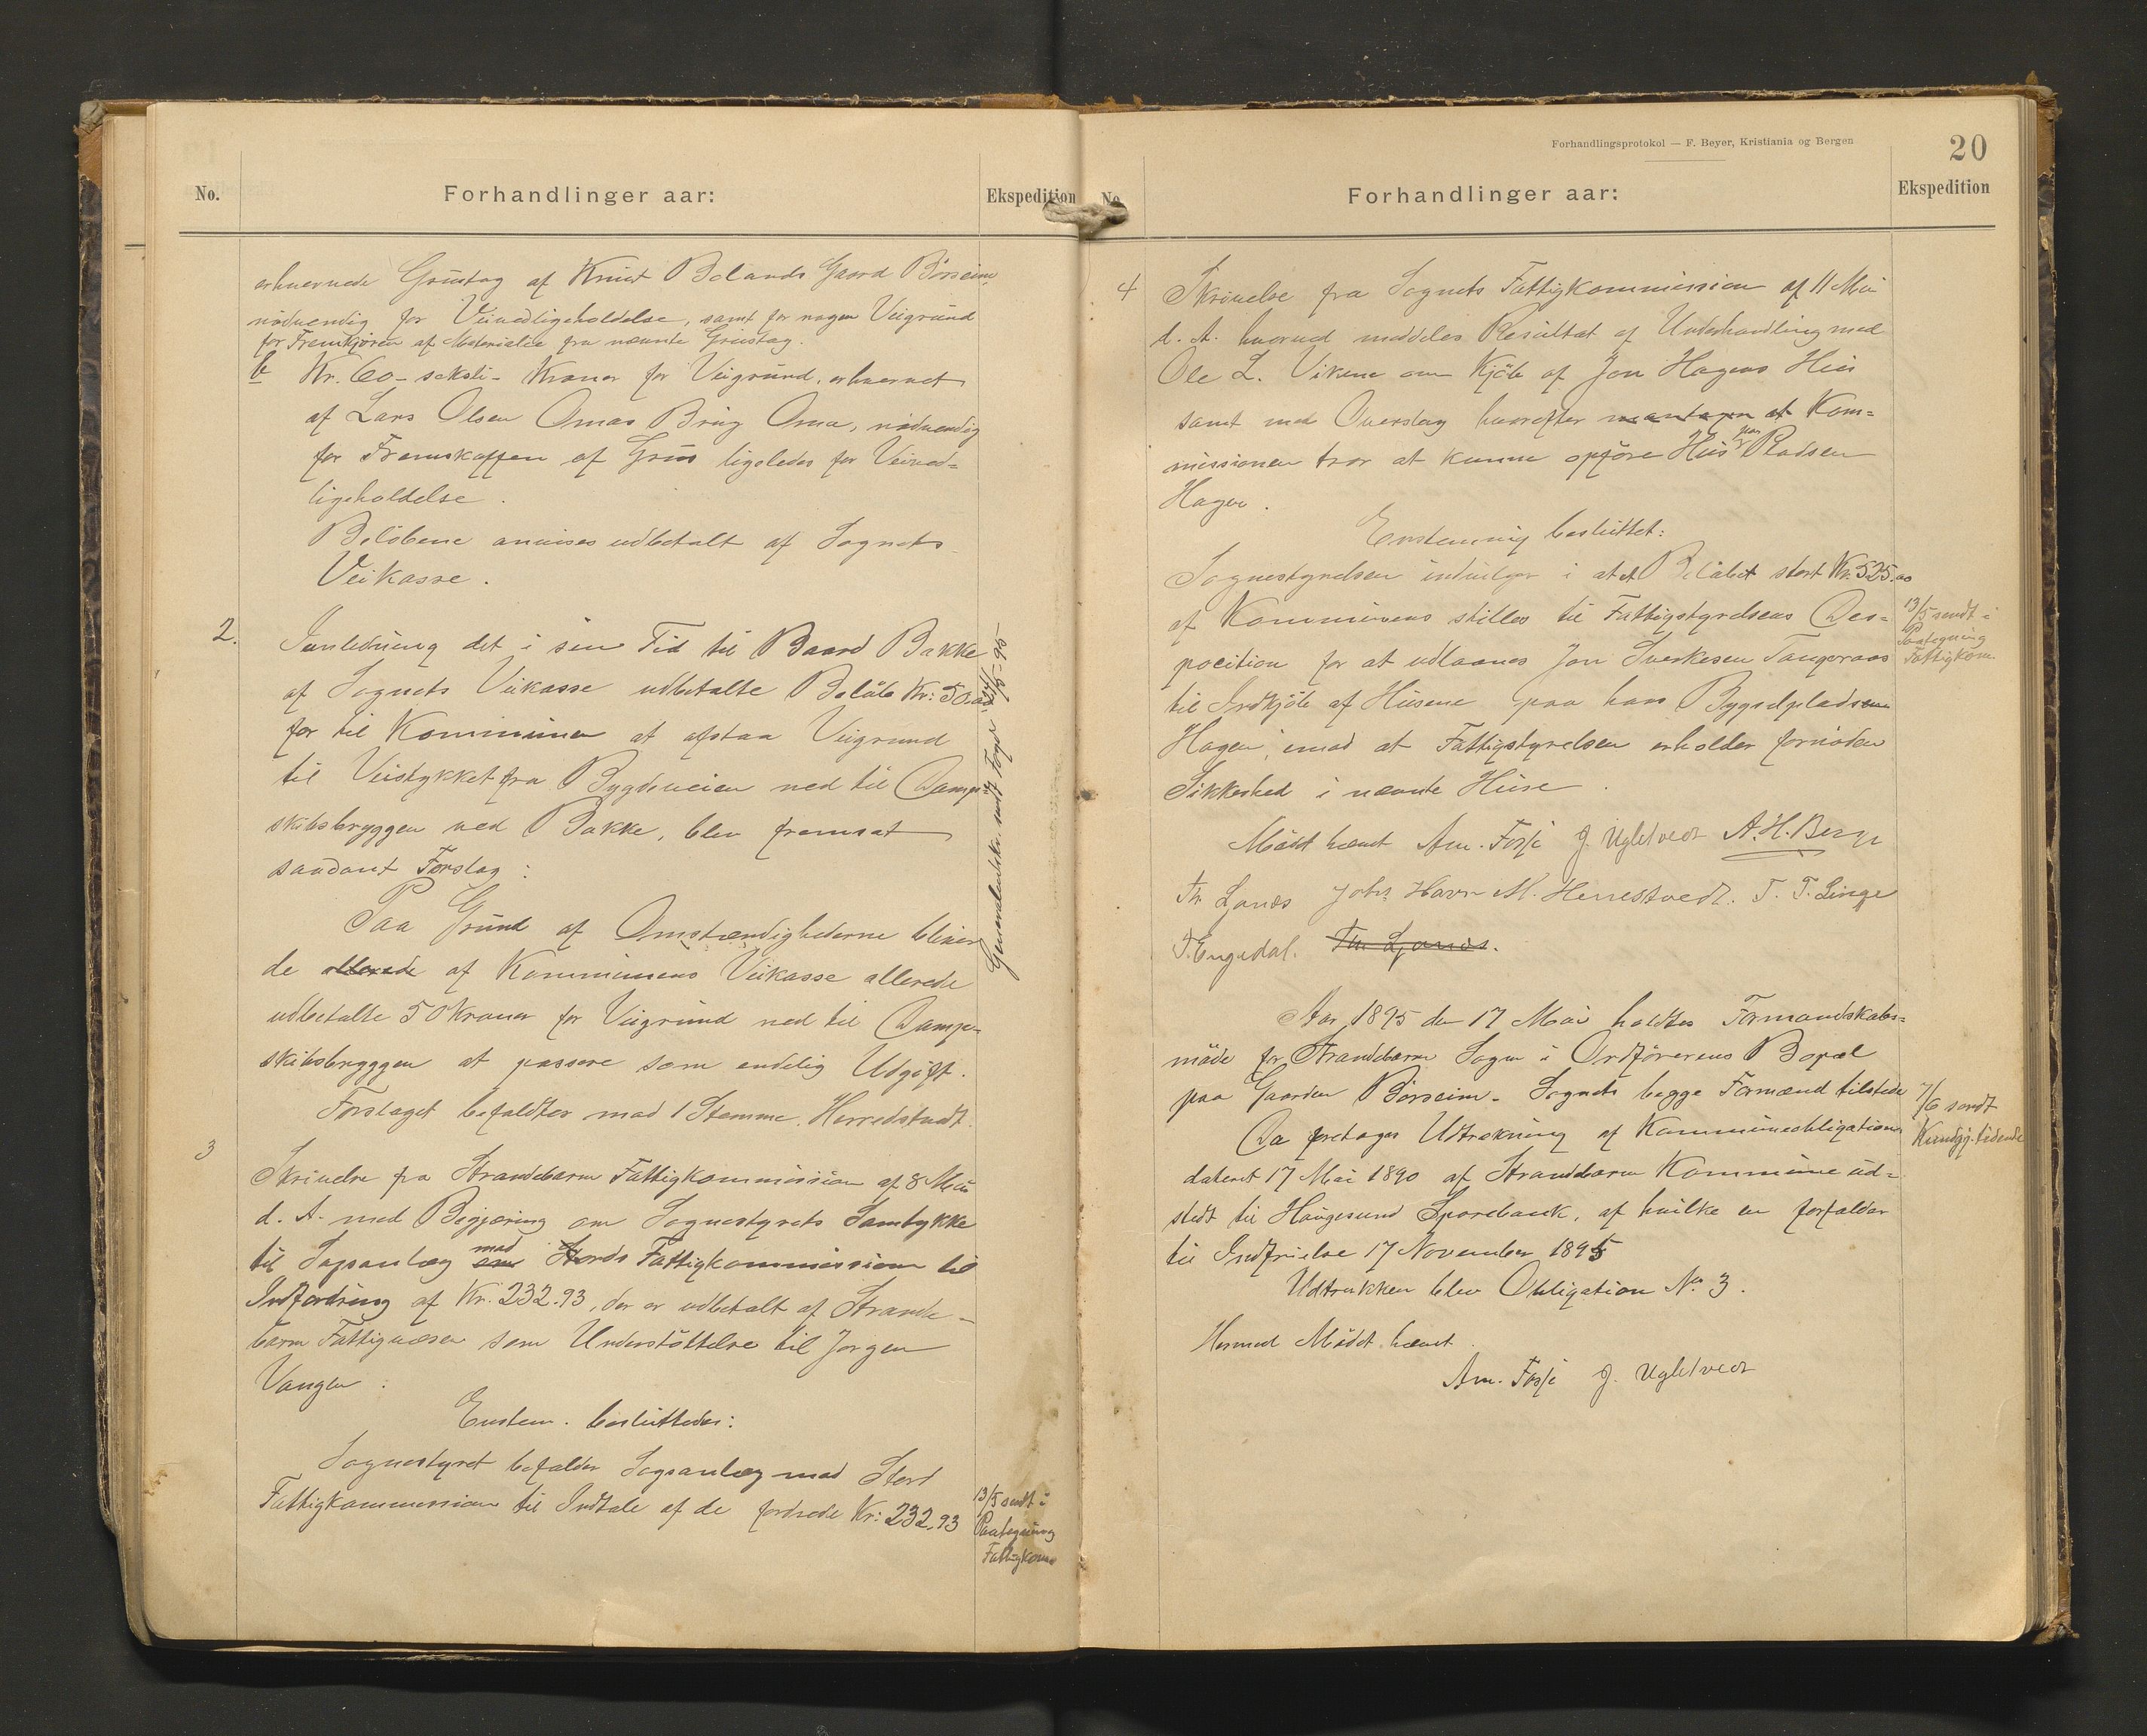 No.
Forhandlinger aar:
Ekspedition
erhvervede Grustag af Knut Bolands Gaard Börseim,
nödvendig for Veivedligeholdelse, samt for nogen Veigrund
for Fremkjören af Materialie fra nævnte Grustag.
b Kr. 60 - seksti - Kroner for Veigrund, erhvervet
af Lars Olsen Omas Brug Oma, nödvendig
for Fremskaffen af Grus ligeledes for Veived=
ligeholdelse.
Belöbene anvises udbetalt af Sognets
Veikasse.
2. Ianledning det i sin Tid til Baard Bakke
af Sognets Veikasse udbetalte Belöb Kr: 50.00
for til Kommunen at afstaa Veigrund
til Veistykket fra Bygdeveien ned til Damp=
skibsbryggen ved Bakke, blev fremsat
saadant Forslag:
Paa Grund af Omstændighederne bliver
de allerede af Kommunens Veikasse allerede
udbetalte 50 Kroner for Veigrund ned til Damp=
skibsbrygggen at passere som endelig Udgift.
Forslaget befaldtes mod 1 Stemme. Herredstvedt.
3
Skrivelse fra Strandebarm Fattigkommission af 8 Mai
d. A. med Begjæring om Sognestyrets Samtykke
til Sagsanlæg med Stords Fattigkommission til
Indfordring af Kr. 232.93, der er udbetalt af Strande-
barm Fattigvæsen som Understöttelse til Jorgen
Vangen.
Enstem. besluttedes:
Sognestyret befalder Sagsanlæg mod Stord
Fattigkommission til Indtale af de fordrede Kr: 232,93
13/5 sendt i
Paategning
Fattigkom
Forhandlingsprotokol — F. Beyer, Kristiania og Bergen
20
No.
Forhandlinger aar:
Ekspedition
4 Skrivelse fra Sognets Fattigkommission af 11 Mai
d. A. hvorved meddeles Resultat af Underhandling med
Ole L. Vikene om Kjöb af Jon Hagens Hus
samt med Overslag hvorefter at Kom=
missionen tror at kunne opföre Hus paa Pladsen
Hagen.
Enstemmig besluttet:
Sognestyrelsen indvilger i at et Belöbet stort Kr. 525.00
af Kommunens stilles til Fattigstyrelsens Des=
position for at udlaanes Jon Sverkesen Tangeraas
til Indkjöb af Husene paa hans Bygselpladsen
Hagen, imod at Fattigstyrelsen erholder fornöden
Sikkerhed i nævnte Huse.
13/5 sendt i
Paategning
Fattigkom.
Mödet hævet Am. Fosse J. Ugletvedt A. H. Berge
Th Lønes Johs Havn M. Herrestvedt. T. T. Linge
T. Engedal. Th Lønes.
Aar 1895 den 17 Mai holdtes Formandskabs=
möde for Strandebarm Sogn i Ordförerens Bopæl
paa Gaarden Börseim - Sognets begge Formænd tilstede
Da foretages Udtrækning af Kommuneobligation
dateret 17 Mai 1890 af Strandebarm Kommune ud=
stedt til Haugesund Sparebank, af hvilke en forfalder
til Indfrielse 17 November 1895
Udtrukken blev Obligation No. 3.
7/6 sendt
Kundgj. tidende
Hermed Mödet hævet.
Am. Fosse J. Ugletvedt